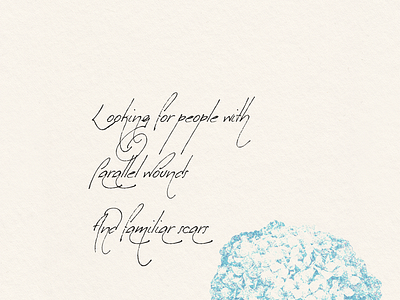 Looking for people with
Parallel wounds
And familiar scars